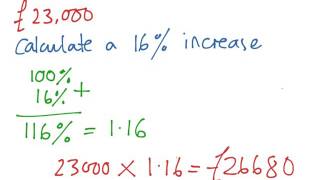 £23,000
Calculate a 16% increase
100%
16% +
116% = 1·16
23000 × 1·16 = £26680